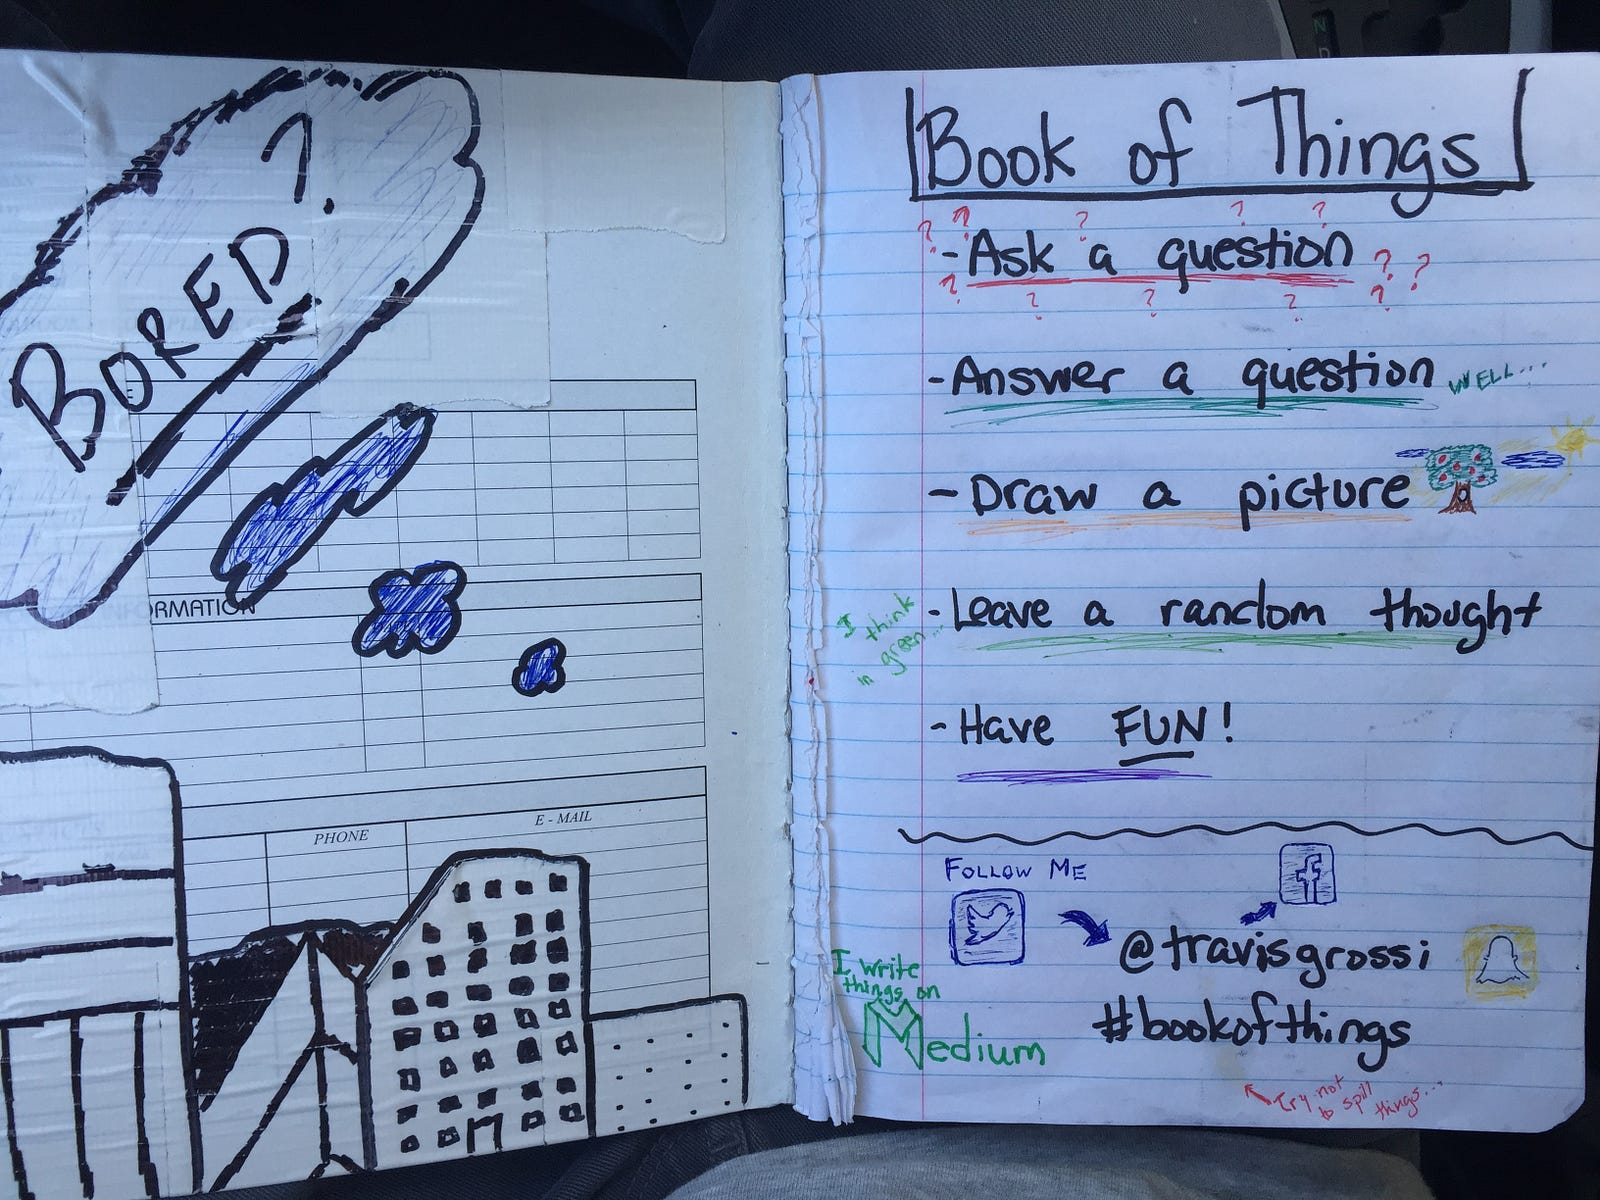 BORED?
INFORMATION
PHONE
E - MAIL
Book of Things
-Ask a question
-Answer a question WELL...
-Draw a picture
-Leave a random thought
I think in green...
-Have FUN!
FOLLOW ME
@travisgrossi
#bookofthings
I write
things on
Medium
Try not
to spill
things...
N
D